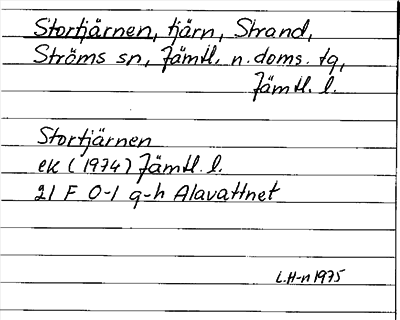 Stortjärnen, tjärn, Strand,
Ströms sn, Jämtl. n. doms. tg,
Jämtl. l.
Stortjärnen
ek (1974) Jämtl. l.
21 F 0-1 g-h Alavattnet
L.H-n 1975